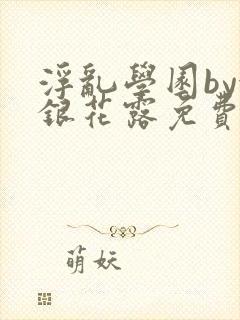 浮亂學園by
銀花露免費
萌妖